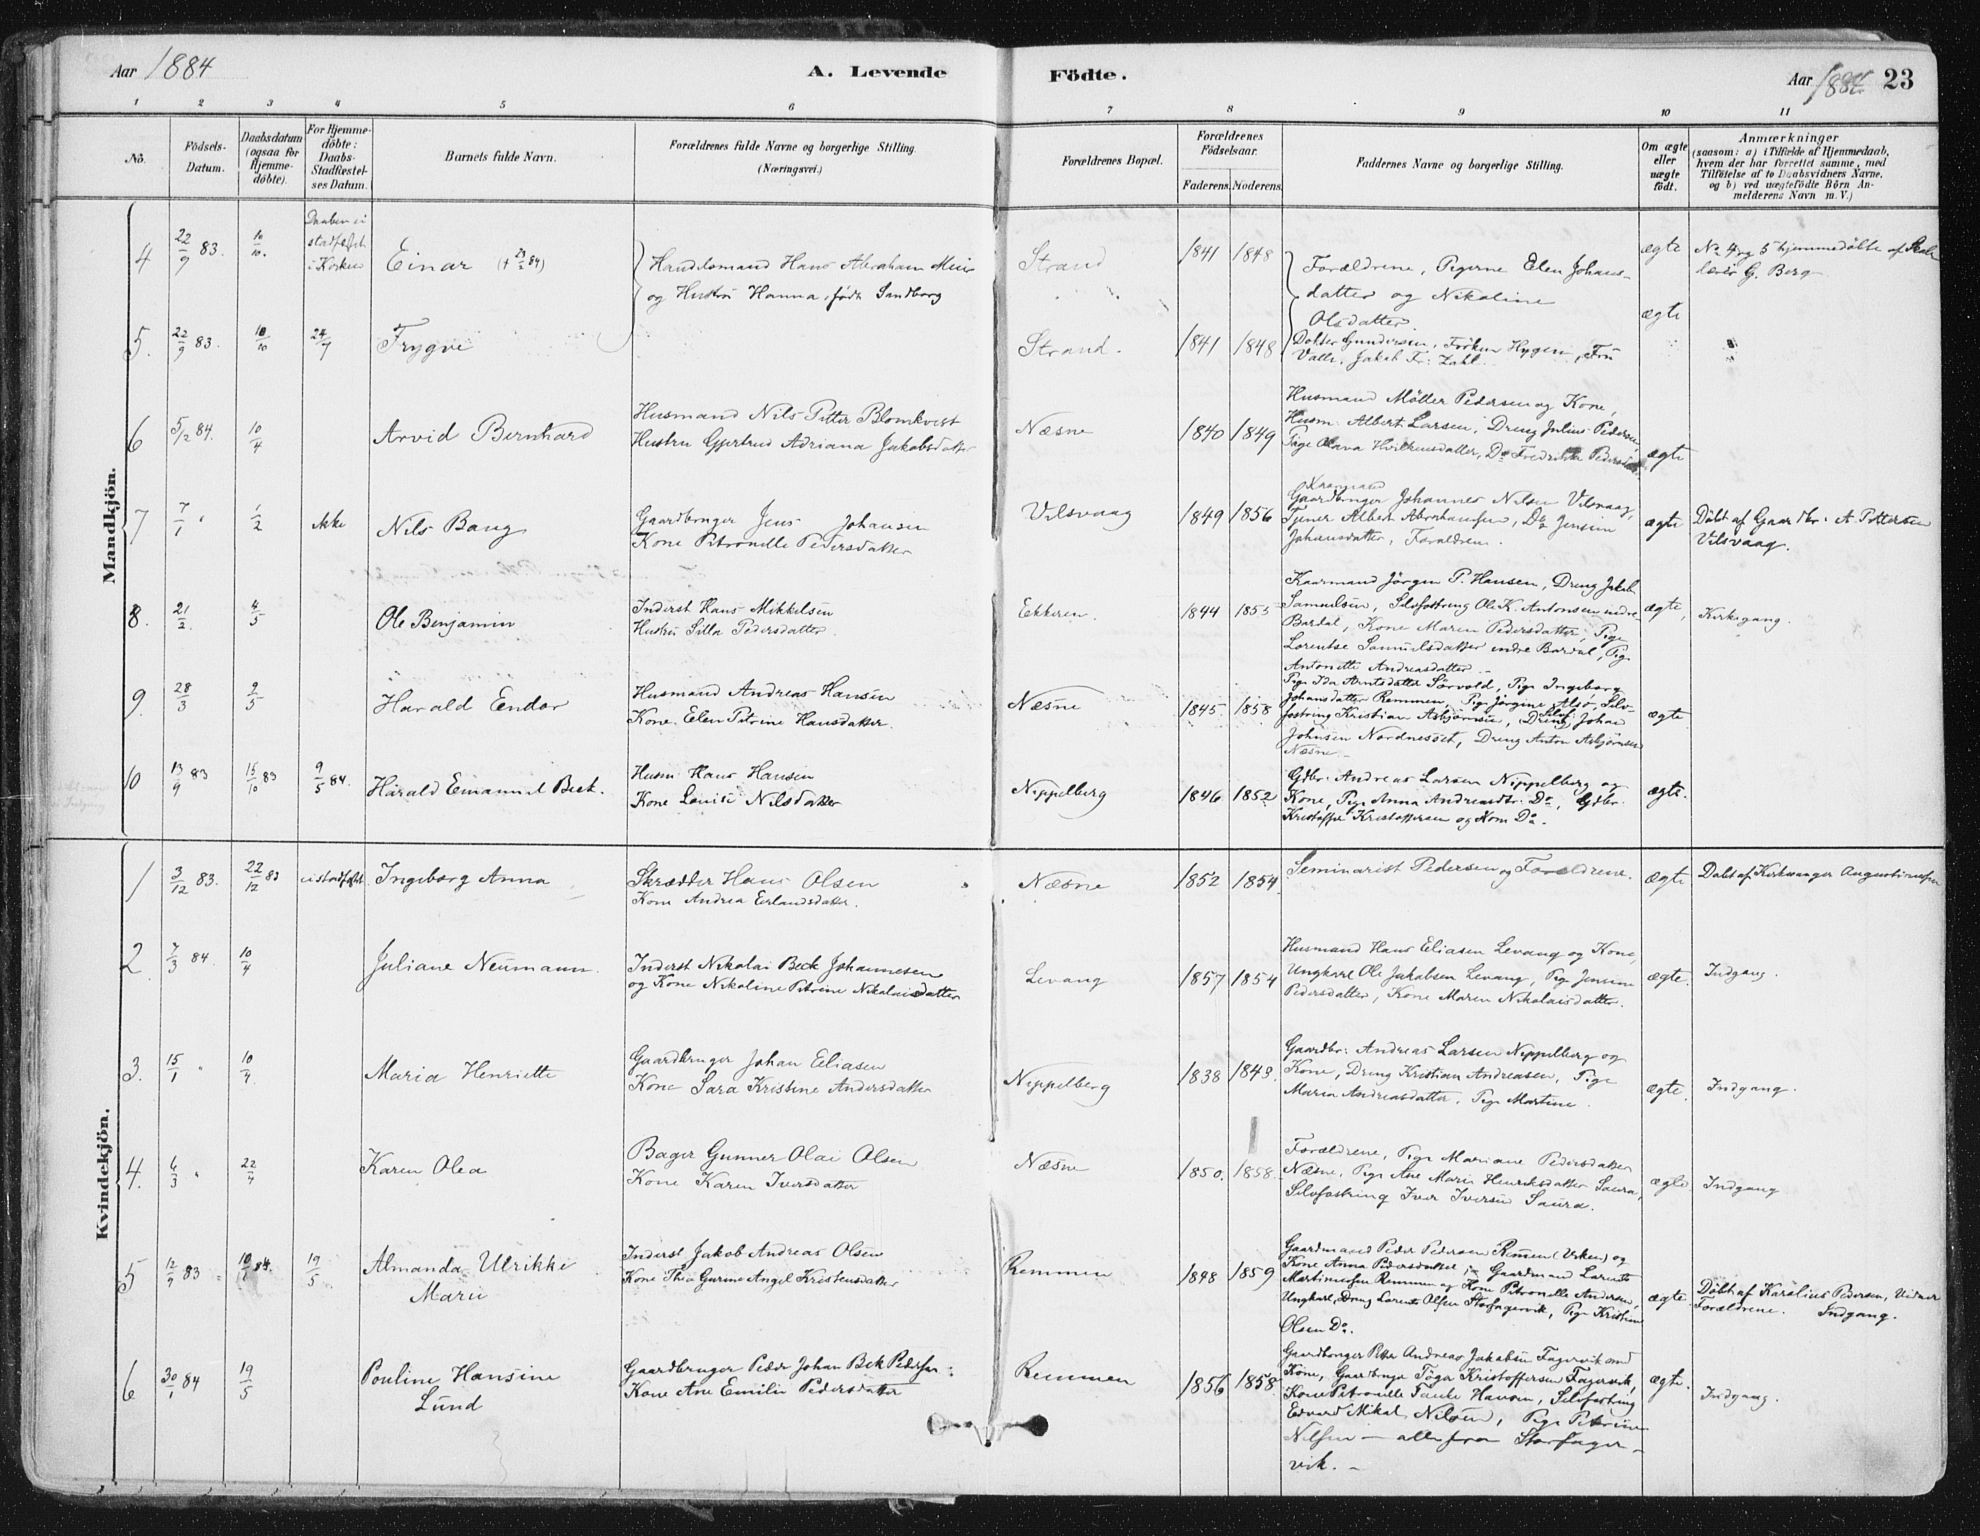 Aar 1884
A. Levende Födte.
Aar 1884 23
1 2 3 4 5 6 7 8 9 10 11
No.
Födsels-Datum.
Daabsdatum (ogsaa for Hjemme-döbte).
For Hjemme-döbte: Daabs-Stadfæstel-ses Datum.
Barnets fulde Navn.
Forældrenes fulde Navne og borgerlige Stilling. (Næringsvei.)
Forældrenes Bopæl.
Forældrenes Födselsaar.
Faderens. Moderens.
Faddernes Navne og borgerlige Stilling.
Om ægte eller uægte födt.
Anmærkninger
(saasom: a) i Tilfælde af Hjemmedaab, hvem der har forrettet samme, med Tilföielse af to Daabsvidners Navne, og b) ved uægtefödte Börn An-melderens Navn m. V.)
Mandkjön.
4 22/9 83. 10/10. Daaben ei stadfæstet i Kirken Einar
Handelsmand Hans Abraham Meier
og Hustru Hanna, född Sandborg
Strand 1841 1848
Forældrene, Pigerne Elen Johans-
datter og Nikoline
Olsdatter.
ægte
No 4 og 5 hjemmedöbte af Skole
lærer G. Berg
5. 22/9 83. 10/10 Trygve
Strand. 1841 1848
Dokter Gundersen, Fröken Hygen, Fru
Valle, Jakob Fr: Zahl.
ægte
6 5/2 84. 10/4 Arvid Bernhard
Husmand Nils Petter Blomkvist
Hustru Gjertrud Adriana Jakobsdatter
Næsne 1840 1849
Husmand Möller Pedersen og Kone,
Husm: Albert Larsen, Dreng Julius Pedersen
Pige Olava
ægte
7 7/1 " 1/2 ikke Nils Bang
Gaardbruger Jens Johansen
Kone Petronelle Pedersdatter
Vilsvaag 1849 1856
Gaardbruger Johannes Nilsen Vilsvaag,
Tjener Albert Abrahamsen, Do Jensine
Johansdatter, Forældrene.
ægte
Döbt af Gaardbr: A. Pettersen
Vilsvaag.
8. 21/2. 4/5 Ole Benjamin
Inderst Hans Mikkelsen
Hustru Silla Pedersdatter.
Ekkeren. 1844
Kaarmand Jörgen P. Hansen, Dreng Jakob
Samuelsen, Selvfostring Ole K. Antonsen indre
Bardal, Kone Maren Pedersdatter, Pige
Lorentse Samuelsdatter indre Bardal, Pige
Antonette Andreasdatter.
ægte,
Kirkegang.
9. 28/3 9/5 Harald Endor
Husmand Andreas Hansen
Kone Elen Petrine Hansdatter.
Næsne 1845. 1858
Pige Ida Arntsdatter Sörvold, Pige Ingeborg
Johansdatter Remmen, Pige Jörgine Alsö, Selv-
fostring Kristian Asbjörnsen, Dreng Johan
Johnsen Nordnesöet, Dreng Anton Asbjörnsen
Næsne.
ægte
10 13/9 83 15/10 83 9/5 84. Harald Emanuel Beck.
Husm: Hans Hansen
Kone Louise Nilsdatter
Nippelberg 1846 1852
Gdbr: Andreas Larsen Nippelberg og
Kone, Pige Anna Andreasdtr. Do, Gdbr.
Kristoffer Kristoffersen og Kone Do.
ægte.
Kvindekjön.
1 3/12 83. 22/12 83 ei stadfæstet Ingeborg Anna
Skrædder Hans Olsen
Kone Andrea Erlandsdatter.
Næsne 1852 1854
Seminarist Pedersen og Forældrene.
ægte
Döbt af Kirkesanger Augustinussen
2. 7/3 84. 10/4 Juliane Neumann.
Inderst Nikolai Beck Johannesen
og Kone Nikoline Petrine Nikolaisdatter
Levang 1857 1854
Husmand Hans Eliasen Levang og Kone,
Ungkarl Ole Jakobsen Levang, Pige Jensine
Pedersdatter, Kone Maren Nikolaisdatter.
ægte.
Indgang.
3. 15/1 " 10/4. Maria Henriette
Gaardbruger Johan Eliasen
Kone Sara Kristine Andersdatter
Nippelberg 1838 1843.
Gaardbr: Andreas Larsen Nippelberg og
Kone, Dreng Kristian Andreasen, Pige
Maria Andreasdatter, Pige Martine.
ægte.
Indgang.
4. 6/3 " 22/4 Karen Olea
Bager Gunner Olai Olsen
Kone Karen Iversdatter
Næsne 1850. 1858
Forældrene, Pige Mariane Pedersdatter
Næsne, Pige Ane Marie Henriksdatter Saura,
Selvfostring Iver Iversen Saura.
ægte
Indgang
5 12/9 83 84. 19/5. Almanda Ulrikke
Marie
Inderst Jakob Andreas Olsen
Kone Thea Gurine Angel Kristensdatter
Remmen 1848 1859
Gaardmand Peder Pedersen Remen (Viken) og
Kone Anna Pedersdatter, Gaardmand Larents
Martinussen Remmen og Kone Petronelle Andersen,
Ungkarl, Dreng Lorents Olsen Storfagervik, Pige Kristine
Olsen Do.
ægte
Döbt af Karolius Pedersen, Vidner
Forældrene. Indgang.
6 30/1 84 19/5 Pouline Hansine
Lund
Gaardbruger Peder Johan Bek Pedersen
Kone Ane Emilie Pedersdatter
Remmen 1856 1858.
Gaardbruger Petter Andreas Jakobsen Fagervik med
Kone, Gaardbruger Töger Kristoffersen Fagervik,
Kone Petronelle Hansen, Selvfostring
Edvard Mikal Nilsen, Pige Petrine
Nilsen — alle fra Storfager-
vik. —
ægte.
Indgang.